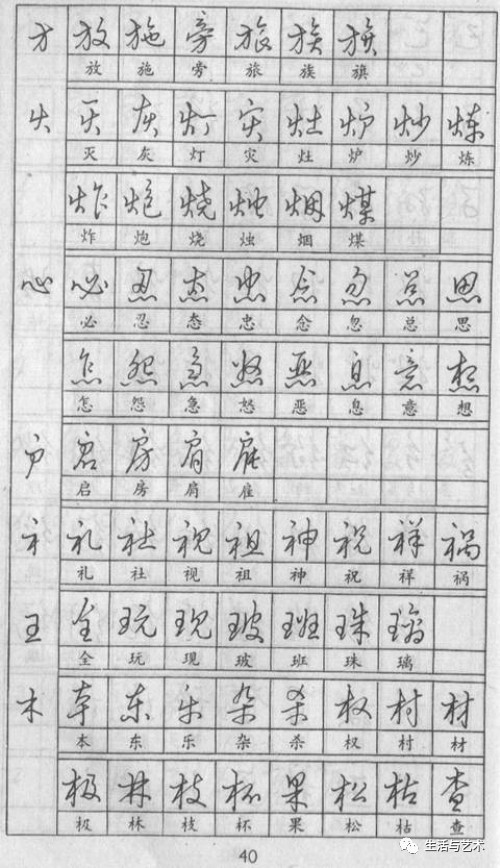 方 放 施 旁 旅 族 旗
放 施 旁 旅 族 旗
火 灭 灰 灯 灾 灶 炉 炒 炼
灭 灰 灯 灾 灶 炉 炒 炼
炸 炮 烧 烛 烟 煤
炸 炮 烧 烛 烟 煤
心 必 忍 态 忠 念 忽 总 思
必 忍 态 忠 念 忽 总 思
怎 怨 急 怒 恶 息 意 想
怎 怨 急 怒 恶 息 意 想
户 启 房 肩 雇
启 房 肩 雇
礻 礼 社 视 祖 神 祝 祥 祸
礼 社 视 祖 神 祝 祥 祸
王 全 玩 现 玻 班 珠 璃
全 玩 现 玻 班 珠 璃
木 本 东 乐 杂 杀 权 村 材
本 东 乐 杂 杀 权 村 材
极 林 枝 杯 果 松 枯 查
极 林 枝 杯 果 松 枯 查
40
生活与艺术